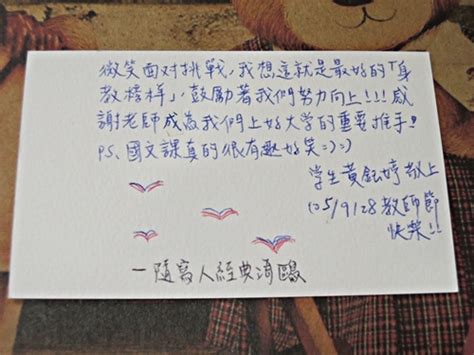 微笑面对挑戰,我想這就是最好的「身
教榜样」,鼓勵著我們努力向上!!!感
謝老師成為我們上好大学的重要推手!!
PS、國文課真的很有趣好笑=)=)
学生黃鈺婷敬上
105/9/28教師節
快樂!!
一隨高人經典海鷗